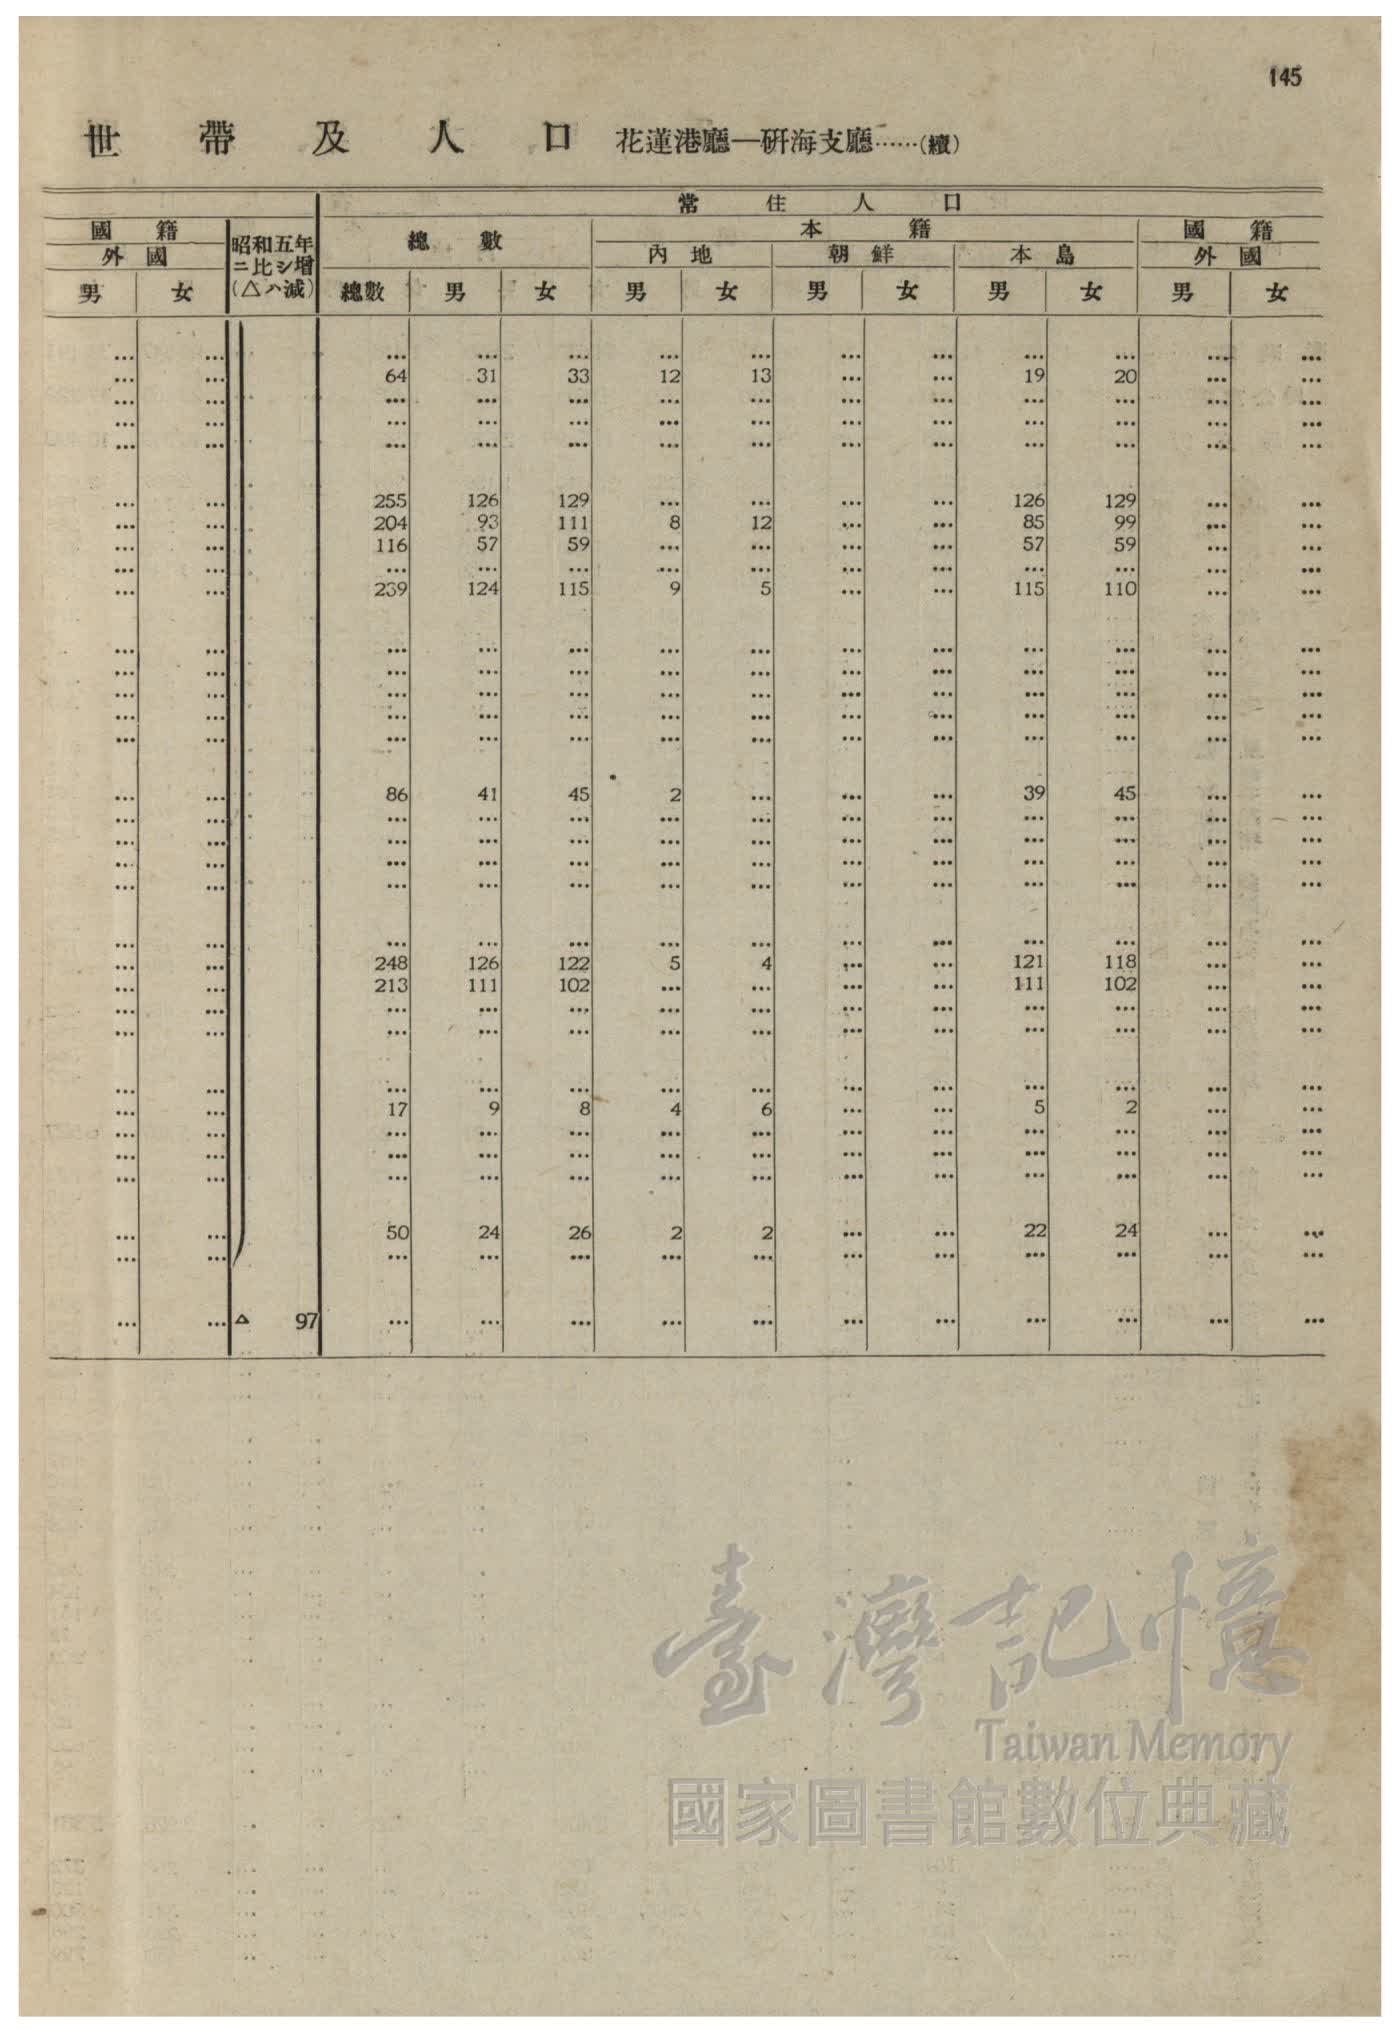 145
世帶及人口 花蓮港廳—研海支廳……(續)
常住人口
國籍 昭和五年ニ比シ增(△ハ減) 總數 本籍 國籍
外國 內地 朝鮮 本島 外國
男 女 總數 男 女 男 女 男 女 男 女 男 女
… … … … … … … … … … … … …
… … 64 31 33 12 13 … … 19 20 … …
… … … … … … … … … … … … …
… … … … … … … … … … … … …
… … … … … … … … … … … … …
… … 255 126 129 … … … … 126 129 … …
… … 204 93 111 8 12 … … 85 99 … …
… … 116 57 59 … … … … 57 59 … …
… … … … … … … … … … … … …
… … 239 124 115 9 5 … … 115 110 … …
… … … … … … … … … … … … …
… … … … … … … … … … … … …
… … … … … … … … … … … … …
… … … … … … … … … … … … …
… … … … … … … … … … … … …
… … 86 41 45 2 … … … 39 45 … …
… … … … … … … … … … … … …
… … … … … … … … … … … … …
… … … … … … … … … … … … …
… … … … … … … … … … … … …
… … … … … … … … … … … … …
… … 248 126 122 5 4 … … 121 118 … …
… … 213 111 102 … … … … 111 102 … …
… … … … … … … … … … … … …
… … … … … … … … … … … … …
… … … … … … … … … … … … …
… … 17 9 8 4 6 … … 5 2 … …
… … … … … … … … … … … … …
… … … … … … … … … … … … …
… … … … … … … … … … … … …
… … 50 24 26 2 2 … … 22 24 … …
… … … … … … … … … … … … …
… … △ 97 … … … … … … … … … … …
臺灣記憶
Taiwan Memory
國家圖書館數位典藏